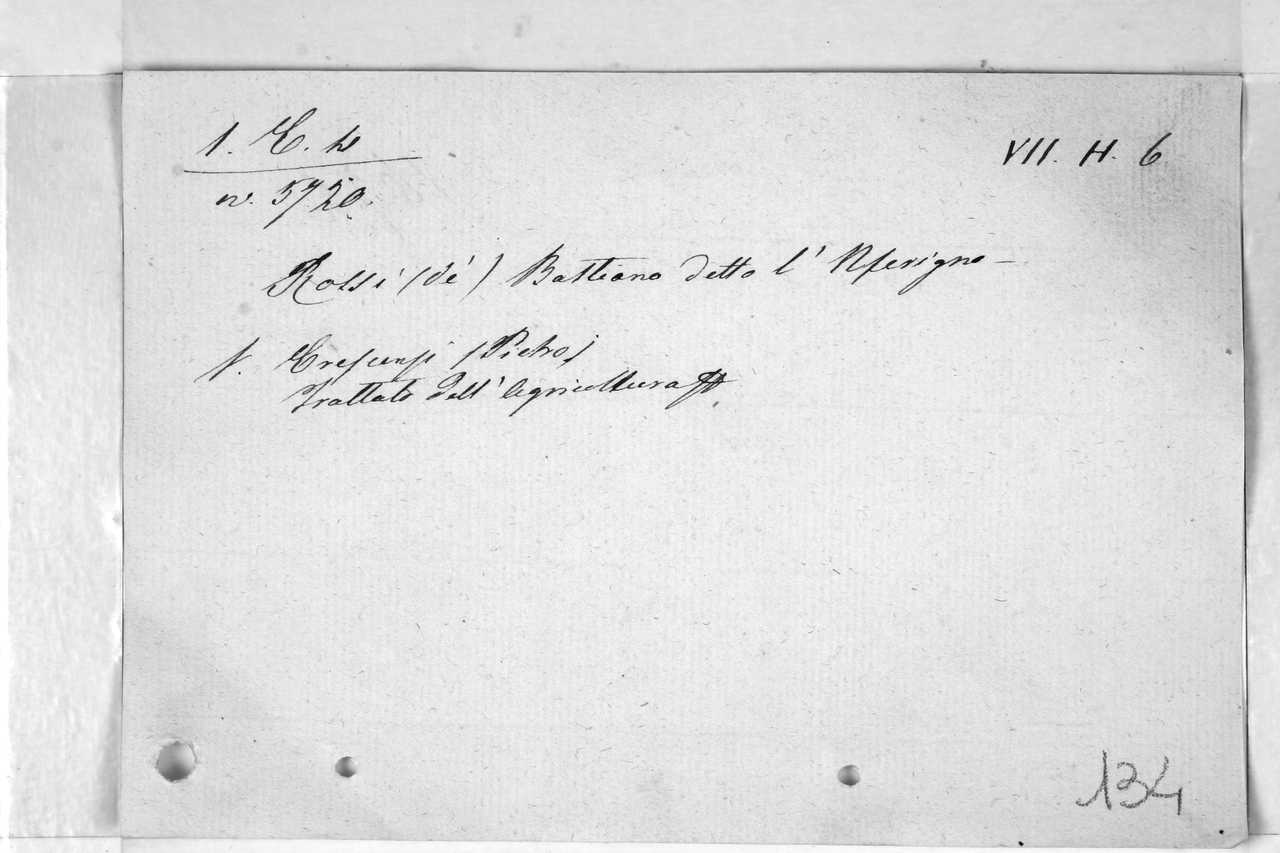 1. E. 4
VII. H. 6
n. 5720.
Rossi (de') Bastiano detto l' Nferigno -
V. Crescenzi (Pietro)
Trattato dell' Agricoltura
134